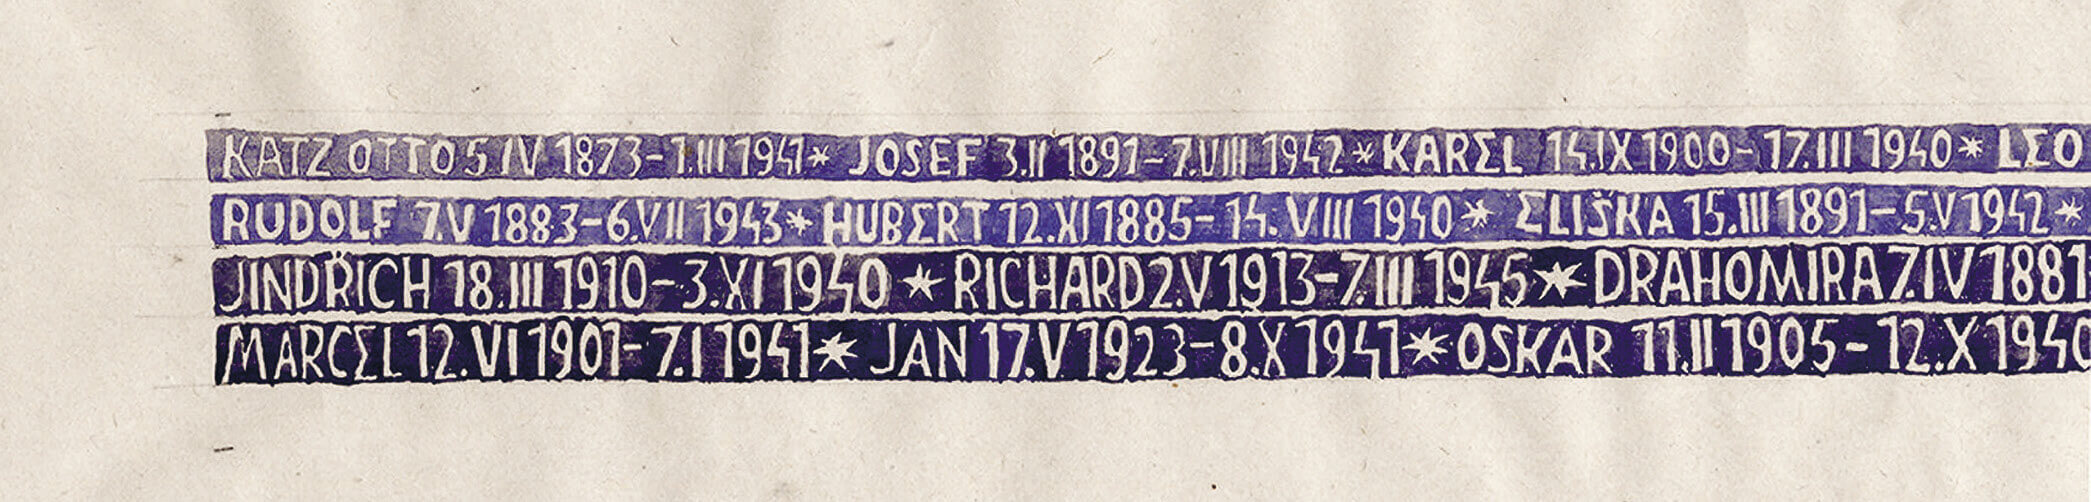 KATZ OTTO 5 IV 1873-1.III 1941* JOSEF 3.II 1891-7.VIII 1942*KAREL 14.IX 1900-17.III 1940* LEO
RUDOLF 7.V 1883-6.VII 1943* HUBERT 12.XI 1885-14.VIII 1940* ELIŠKA 15.III 1891-5.V 1942*
JINDŘICH 18.III 1910-3.XI 1940 * RICHARD 2.V 1913-7.III 1945* DRAHOMIRA 7.IV 1881
MARCEL 12.VI 1901-7.I 1941* JAN 17.V 1923-8.X 1941*OSKAR 11.II 1905-12.X 1940